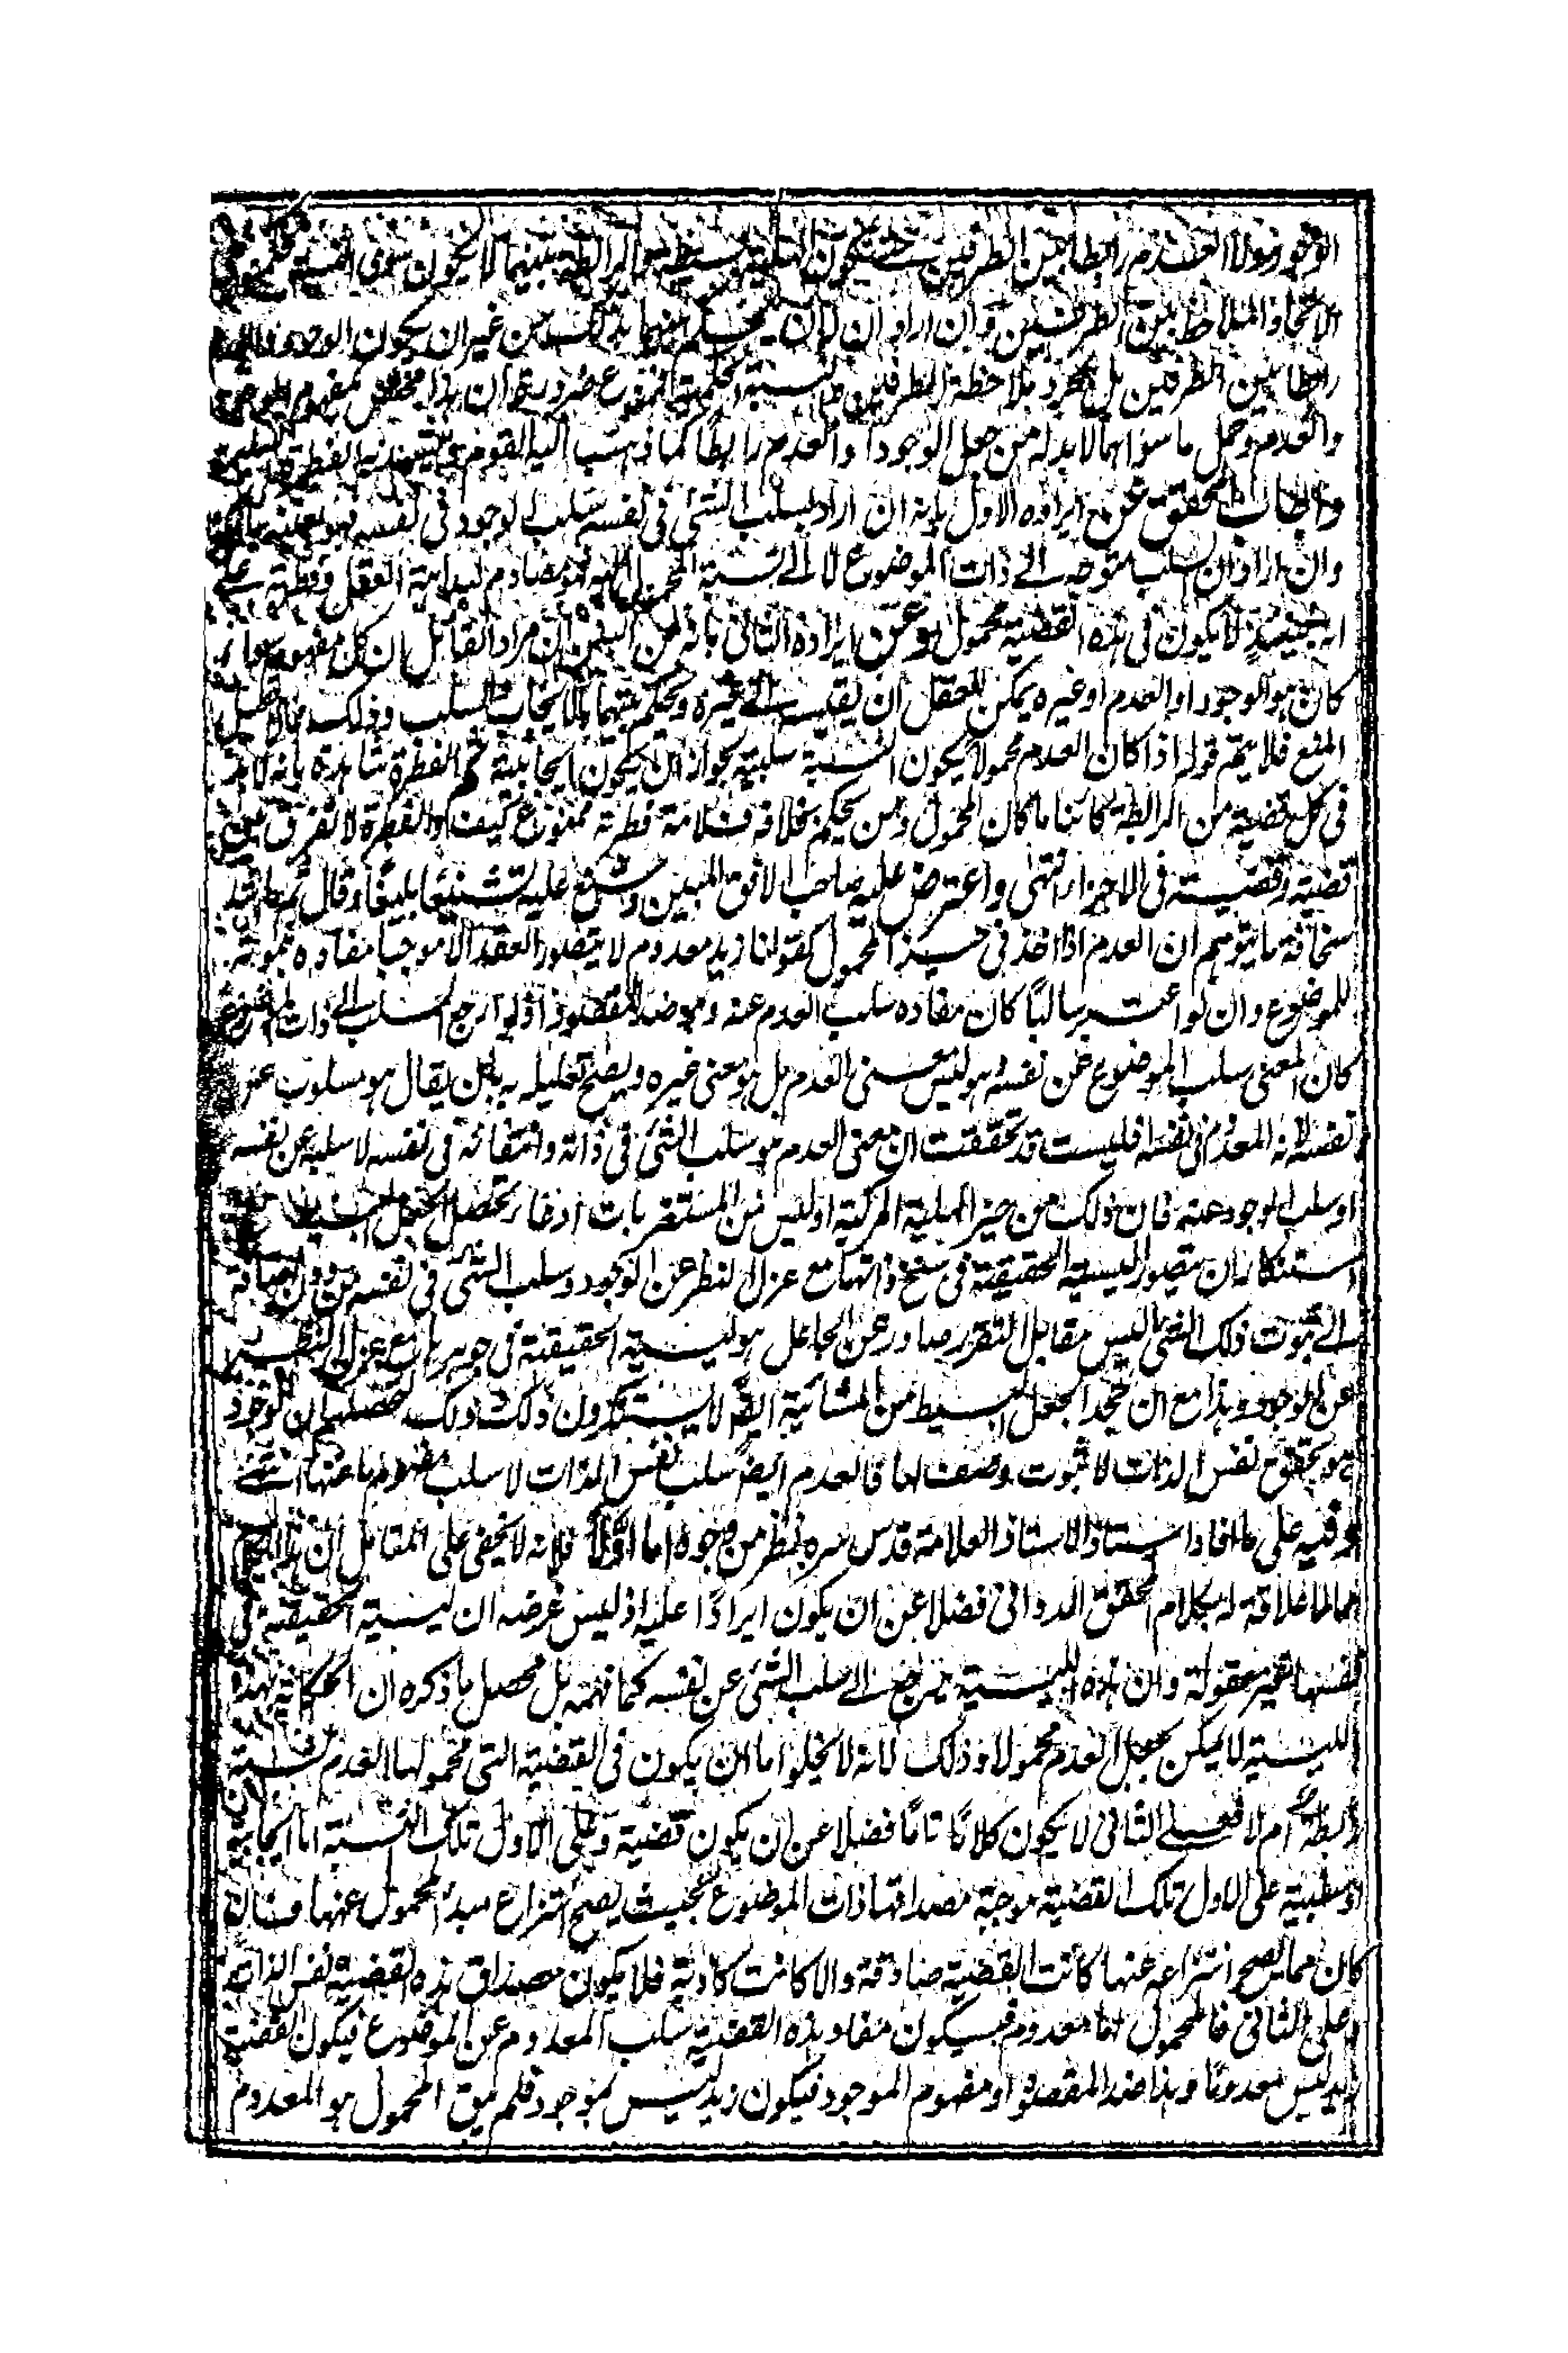 الوجود ولا العدم رابطا بين الطرفين حتى يكون الهلية بسيطة هو الرابطة بينهما لا يكون سوى النسبة
الاتحاد الملاحظ بين الطرفين وان اراد ان بينهما بذلك من غير ان يكون الوجود والعدم
رابطا بين الطرفين بل بمجرد ملاحظة الطرفين بلا نسبة حكمية فممنوع ضرورة ان هذا مخصص بمفهوم الوجود
والعدم وحمل ما سواهما لا بد له من جعل الوجود او العدم رابطا كما ذهب اليه القوم مما يشهد به الفطرة السليمة
واجاب المحقق عن ايراده الاول بانه ان اراد بسلب الشئ في نفسه سلب الوجود في نفسه فهو بعينه
وان اراد ان السلب متوجه الى ذات الموضوع لا الى نسبة المحمول اليه فهو مصادم لبداهة العقل وفطرته على
انه حينئذ لا يكون في هذه القضية محمول وعن ايراده الثاني بانه من البين ان مراد القائل ان كل مفهوم سواء
كان هو الوجود او العدم او غيره يمكن للعقل ان يقيسه الى غيره ويحكم بينهما بالايجاب والسلب وذلك مما لا يقبل
المنع فلا يتم قوله اذا كان العدم محمولا يكون النسبة سلبية لجواز ان يكون ايجابية ثم الفطرة شاهدة بانه لابد
في كل قضية من الرابطة كائنا ما كان المحمول ومن يحكم بخلافه فسلامة فطرته ممنوع كيف والفطرة لا تفرق بين
قضية وقضية في الاجزاء انتهى واعترض عليه صاحب الافق المبين وشنع عليه تشنيعا بليغا وقال
سخافة ما يتوهم ان العدم اذا اخذ في حيز المحمول كقولنا زيد معدوم لا يتصور العقد الا موجبا مفاده ثبوته
للموضوع وان لو اعتبر سالبا كان مفاده سلب العدم عنه وهو ضد المقصود اذ لو ارجع السلب الى ذات الموضوع
كان المعنى سلب الموضوع عن نفسه وهو ليس معنى العدم بل هو معنى غيره ويصلح تعليله به بان يقال هو مسلوب عن
نفسه لانه المعدوم في نفسه افليست قد تحققت ان معنى العدم هو سلب الشئ في ذاته وانتفائه في نفسه لا سلبه عن نفسه
او سلب الوجود عنه فان ذلك من حيز الهلية المركبة اوليس من المستغربات
استنكار ان يتصور الليسية الحقيقية في سنخ ذاتها مع عزل النظر عن الوجود وسلب الشئ في نفسه من دون اضافة
الى ثبوت ذلك الشئ اليس مقابل التقرر صادر عن الجاعل هو ليسية الحقيقية في جوهرها مع عزل النظر
عن الوجود وهذا مع ان جحد الجعل البسيط من المشائية ايضا لا يستنكرون ذلك اوليس محصلهم ان الوجود
هو تحقق نفس الذات لا ثبوت وصف لها فالعدم ايضا سلب نفس الذات لا سلب مفهوم ما عنها انتهى
وفيه على ما افاد استاذ الاستاذ العلامة قدس سره نظر من وجوه اما اولا فلانه لا يخفى على المتامل ان هذا
مما لا علاقة له بكلام المحقق الدواني فضلا عن ان يكون ايرادا عليه اذ ليس غرضه ان ليسية الحقيقة في
نفسها غير معقولة وان هذه الليسية يرجع الى سلب الشئ عن نفسه كما فهمه بل محصل ما ذكره ان الحكاية بهذه
الليسية لا يمكن بجعل العدم محمولا وذلك لانه لا يخلو اما ان يكون في القضية التي محمولها العدم نسبة
رابطة ام لا فعلى الثاني لا يكون كلاما تاما فضلا عن ان يكون قضية وعلى الاول تلك النسبة اما ايجابية
او سلبية على الاول تلك القضية موجبة مصداقها ذات الموضوع بحيث يصح انتزاع مبدأ المحمول عنها فان
كان مما يصح انتزاعه عنها كانت القضية صادقة والا كانت كاذبة فلا يكون مصداق هذه القضية نفس الذات
وعلى الثاني فالمحمول اما معدوم فيكون مفاد هذه القضية سلب المعدوم عن الموضوع فيكون القضية
زيد ليس معدوما وهذا ضد المقصود او مفهوم الموجود فيكون زيد ليس بموجود فلم يبق المحمول هو المعدوم